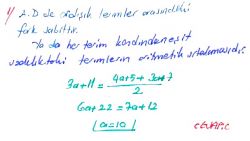 A.D de ardışık terimler arasındaki
fark sabittir.
Ya da her terim kendinden eşit
uzaklıktaki terimlerin aritmetik ortalamasıdır.
3a+11 = (4a+5+3a+7)/2
6a+22 = 7a+12
a=10
CEVAP:C